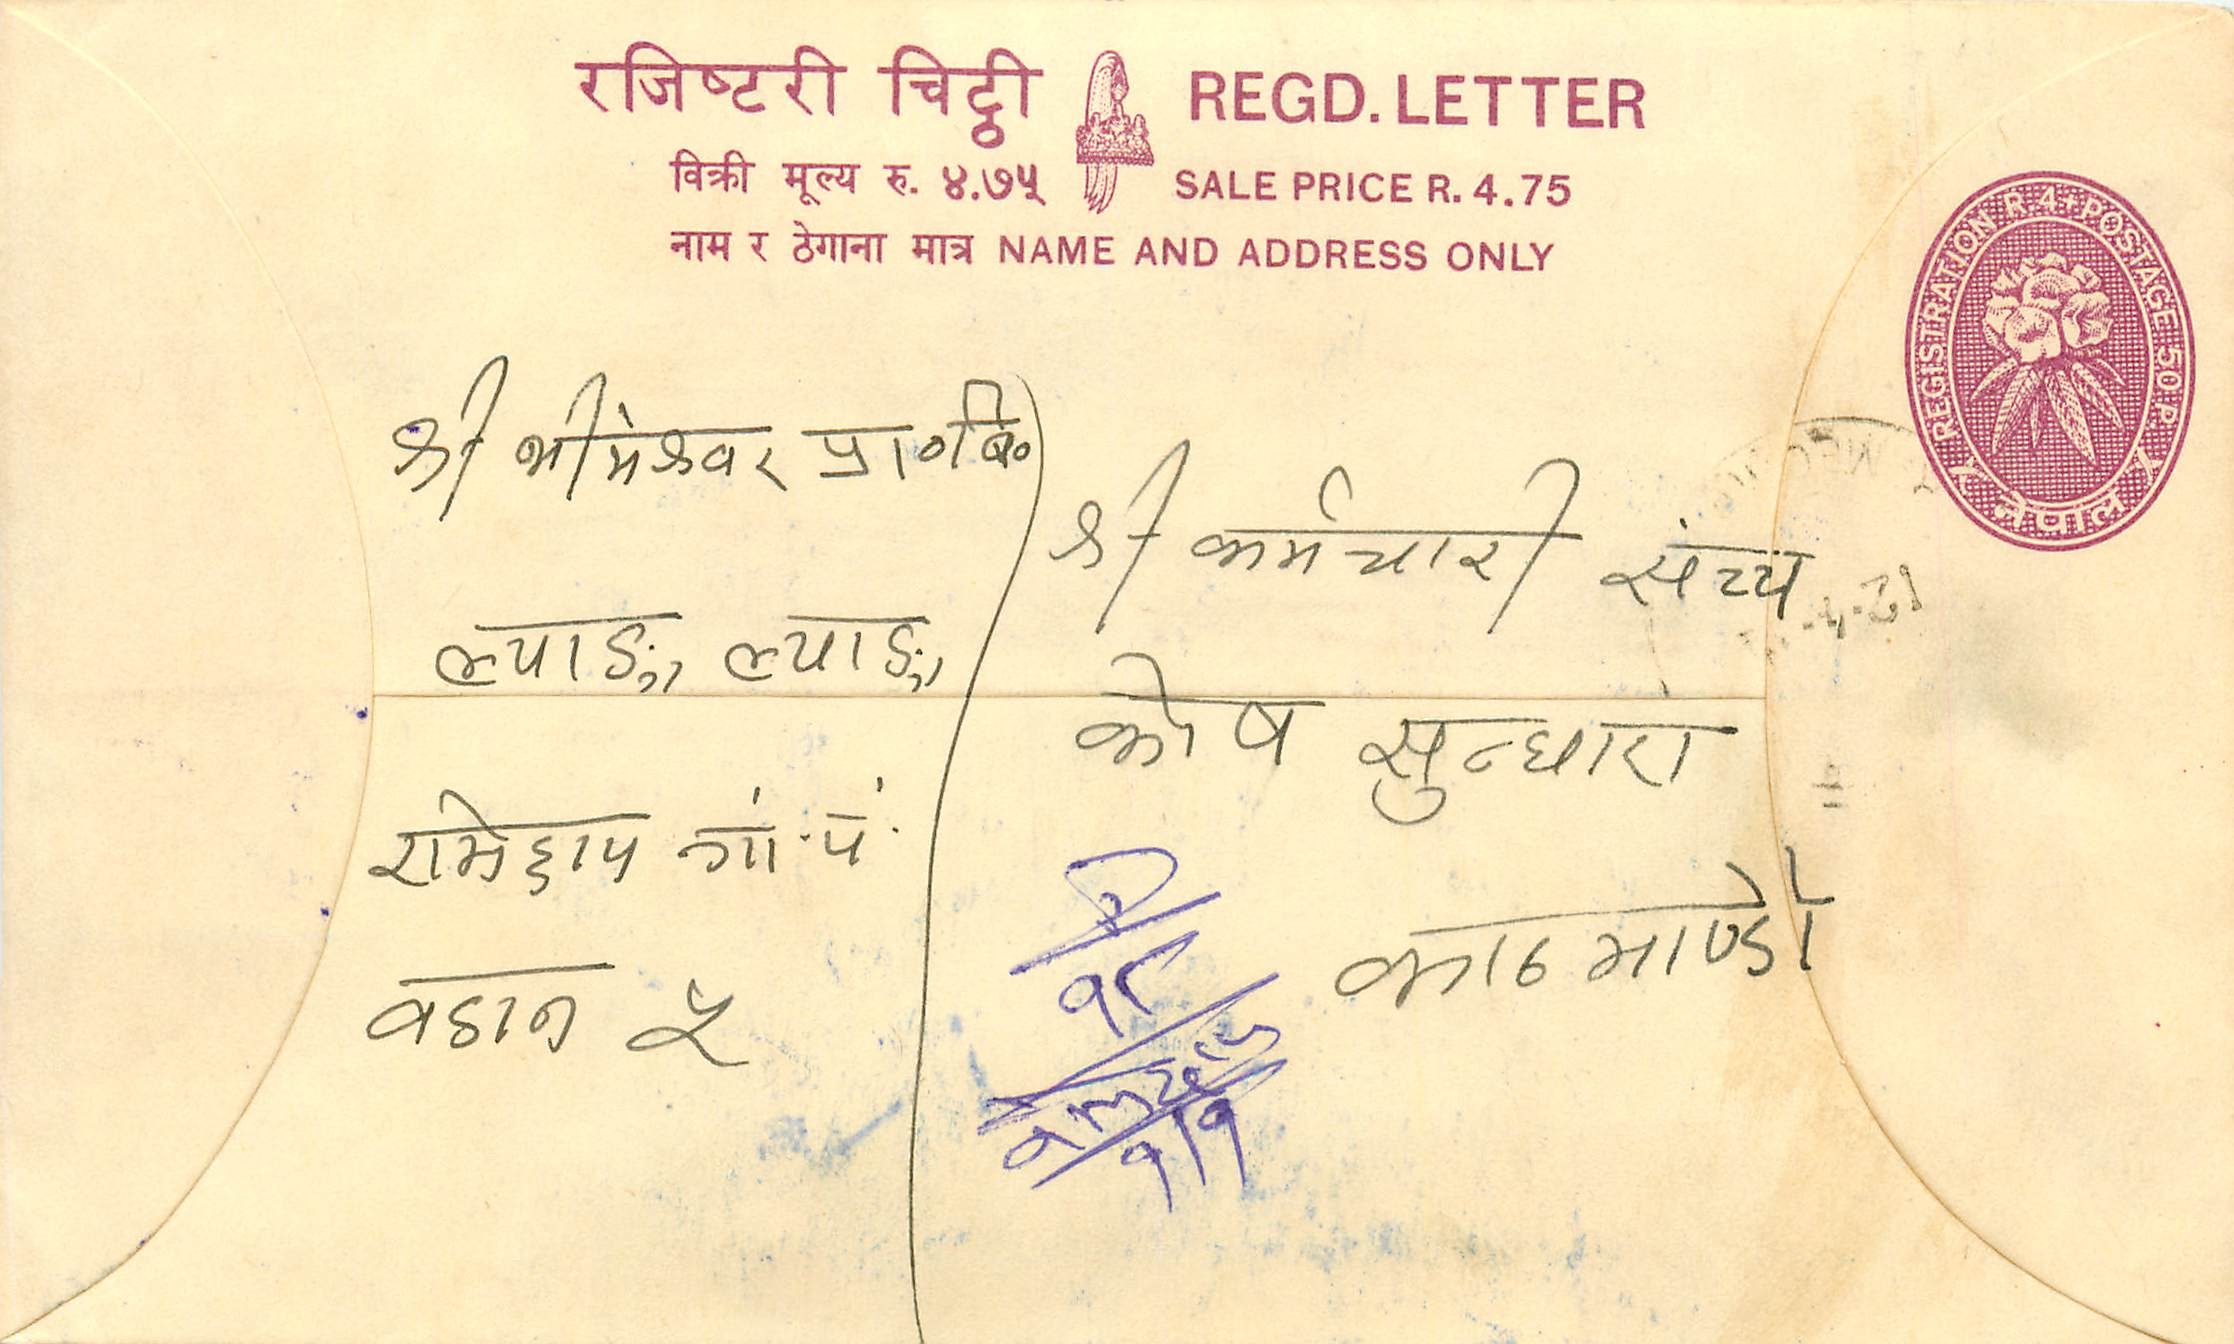 रजिष्टरी चिट्ठी REGD. LETTER
विक्री मूल्य रु. ४.७५ SALE PRICE R. 4.75
नाम र ठेगाना मात्र NAME AND ADDRESS ONLY
REGISTRATION R. 4 + POSTAGE 50 P.
नेपाल
श्री भीमेश्वर प्रा०बि०
ल्याङ, ल्याङ,
रामेछाप गां.पं.
वडा न ५
श्री कर्मचारी संचय
कोष सुन्धारा
काठमाण्डौ